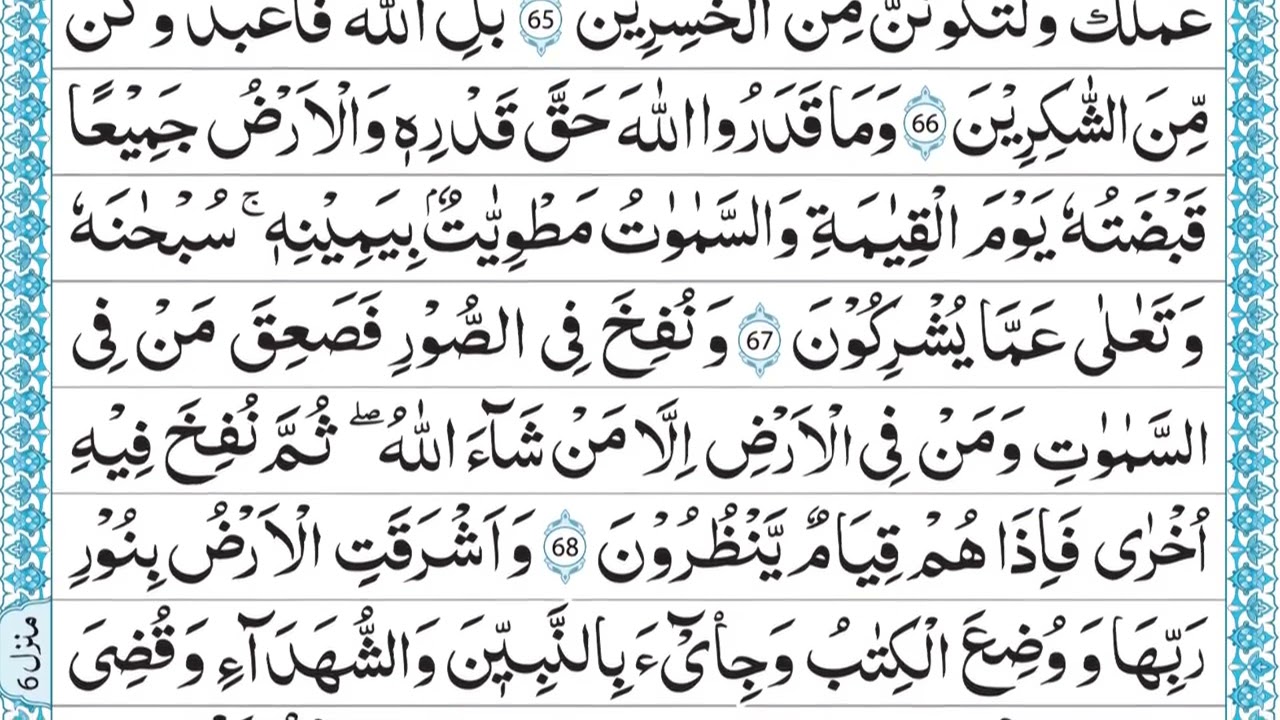 عملك ولتكونن من الخسرين 65 بل الله فاعبد و كن
مِّنَ الشّٰكِرِيْنَ 66 وَمَا قَدَرُوا اللّٰهَ حَقَّ قَدْرِهٖ وَالْاَرْضُ جَمِيْعًا
قَبْضَتُهٗ يَوْمَ الْقِيٰمَةِ وَالسَّمٰوٰتُ مَطْوِيّٰتٌۢ بِيَمِيْنِهٖ ۚ سُبْحٰنَهٗ
وَ تَعٰلٰى عَمَّا يُشْرِكُوْنَ 67 وَ نُفِخَ فِى الصُّوْرِ فَصَعِقَ مَنْ فِى
السَّمٰوٰتِ وَ مَنْ فِى الْاَرْضِ اِلَّا مَنْ شَآءَ اللّٰهُ ۖ ثُمَّ نُفِخَ فِيْهِ
اُخْرٰى فَاِذَا هُمْ قِيَامٌ يَّنْظُرُوْنَ 68 وَ اَشْرَقَتِ الْاَرْضُ بِنُوْرِ
رَبِّهَا وَ وُضِعَ الْكِتٰبُ وَ جِاْیْٓءَ بِالنَّبِيّٖنَ وَ الشُّهَدَآءِ وَ قُضِىَ
منزل 6